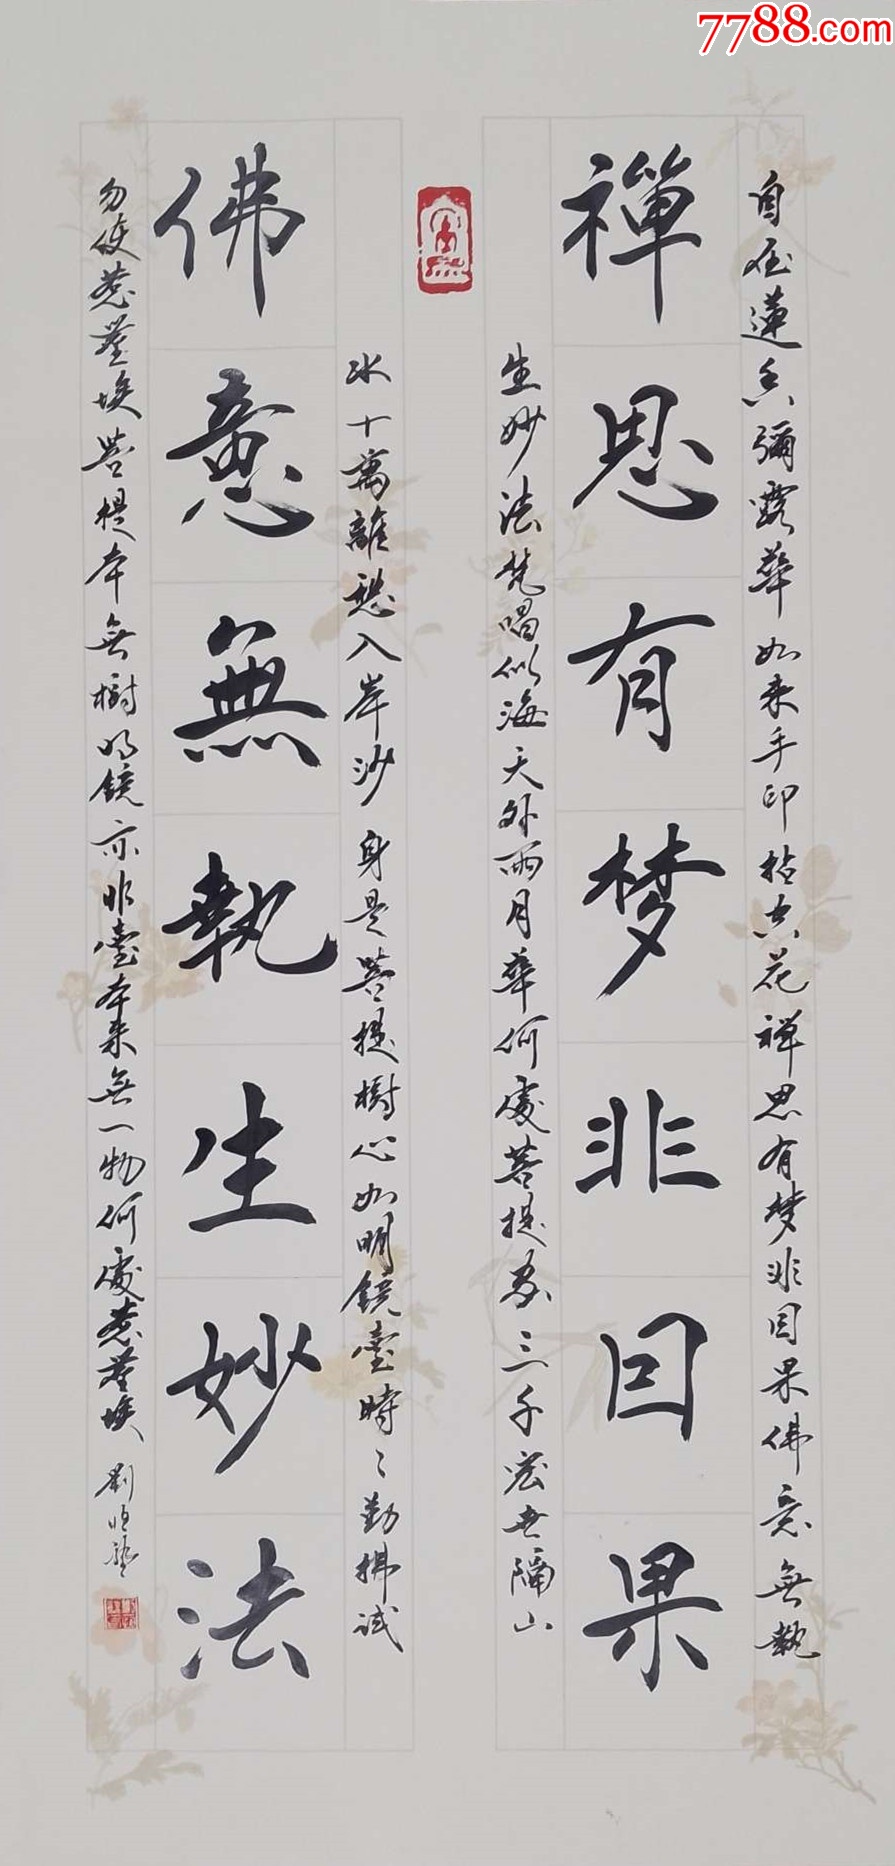 7788.com
自在蓮台彌霧華如来手印拈古花禅思有梦非因果佛意無執
禪思有梦非因果
生妙法梵唱似海天外雨月華何處菩提三千宏世隔山
水十萬離愁入岸沙身是菩提樹心如明鏡臺時々勤拂拭
佛意無執生妙法
勿使惹塵埃菩提本無樹明鏡亦非臺本来無一物何處惹塵埃劉